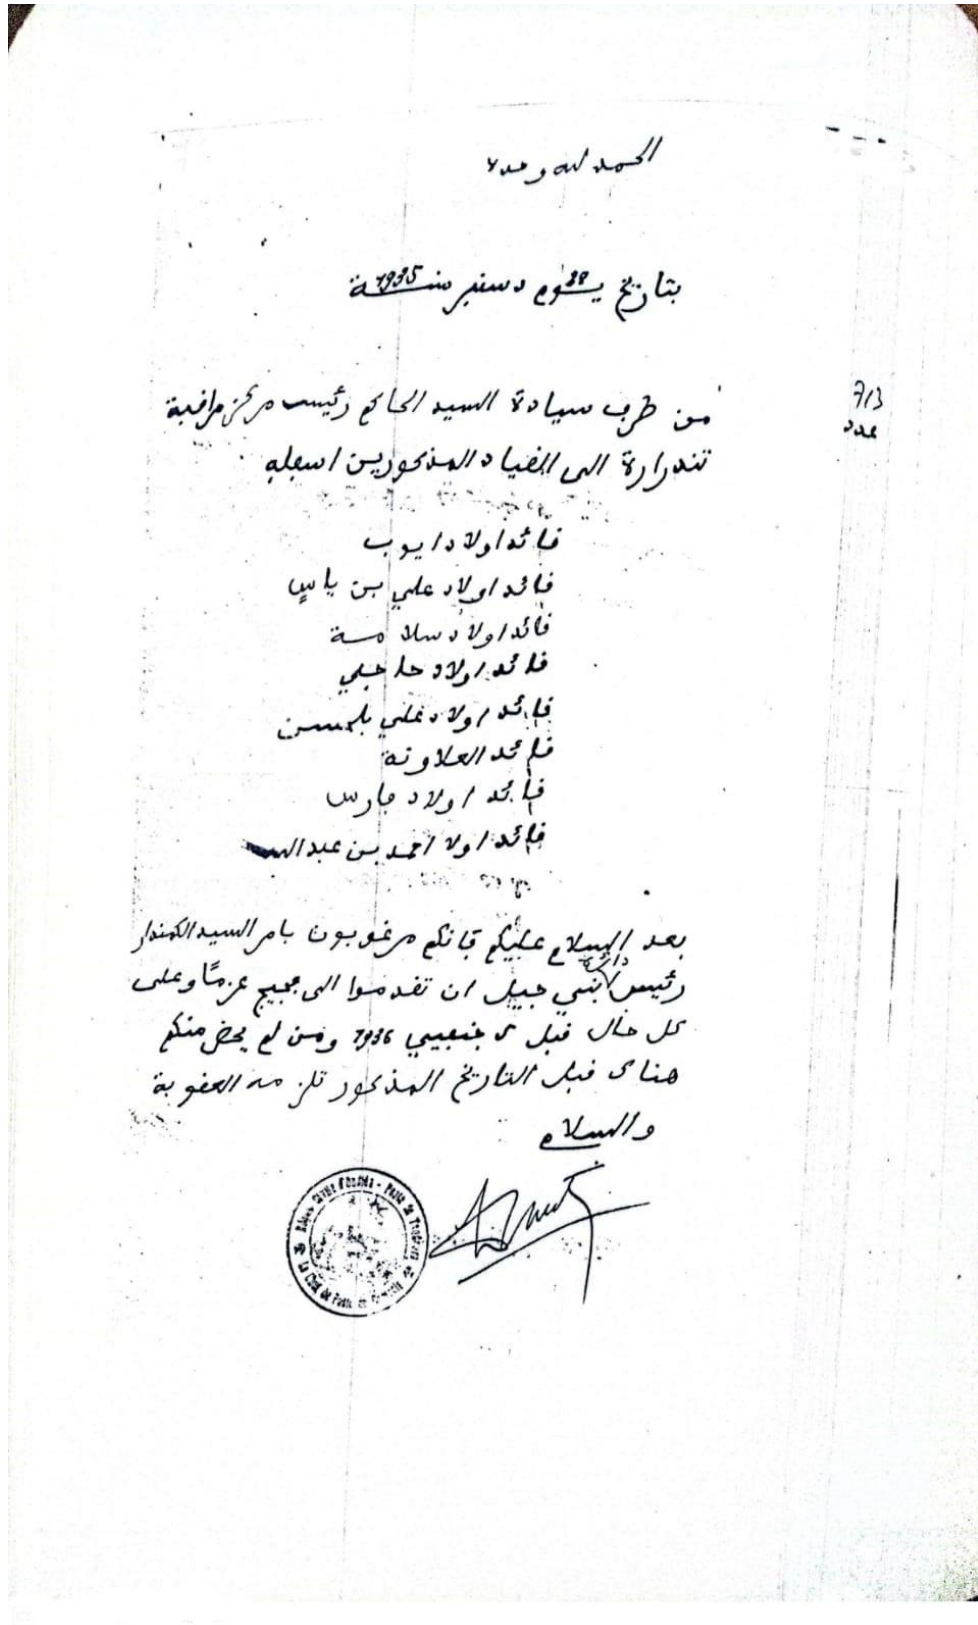 الحمد لله وحده
بتاريخ يوم 28 دسنبر سنة 1935
713
عدد
من طرف سيادة السيد الحاكم رئيس مركز مراقبة
تندرارة الى القياد المذكورين اسفله
قائد اولاد ايوب
قائد اولاد علي بن ياسين
قائد اولاد سلامة
قائد اولاد حاجي
قائد اولاد علي بلحسن
قائد العلاونة
قائد اولاد فارس
قائد اولا احمد بن عبد الله
بعد السلام عليكم فانكم مرغوبون بامر السيد الكمندار
رئيس دائرة بني جيل ان تقدموا الى فجيج عزمًا وعلى
كل حال قبل جنبيي 1936 ومن لم يحض منكم
هناك قبل التاريخ المذكور تلزمه العقوبة
والسلام
Région Civile d'Oujda - Poste de Tendrara
Le Chef de Poste de Tendrara